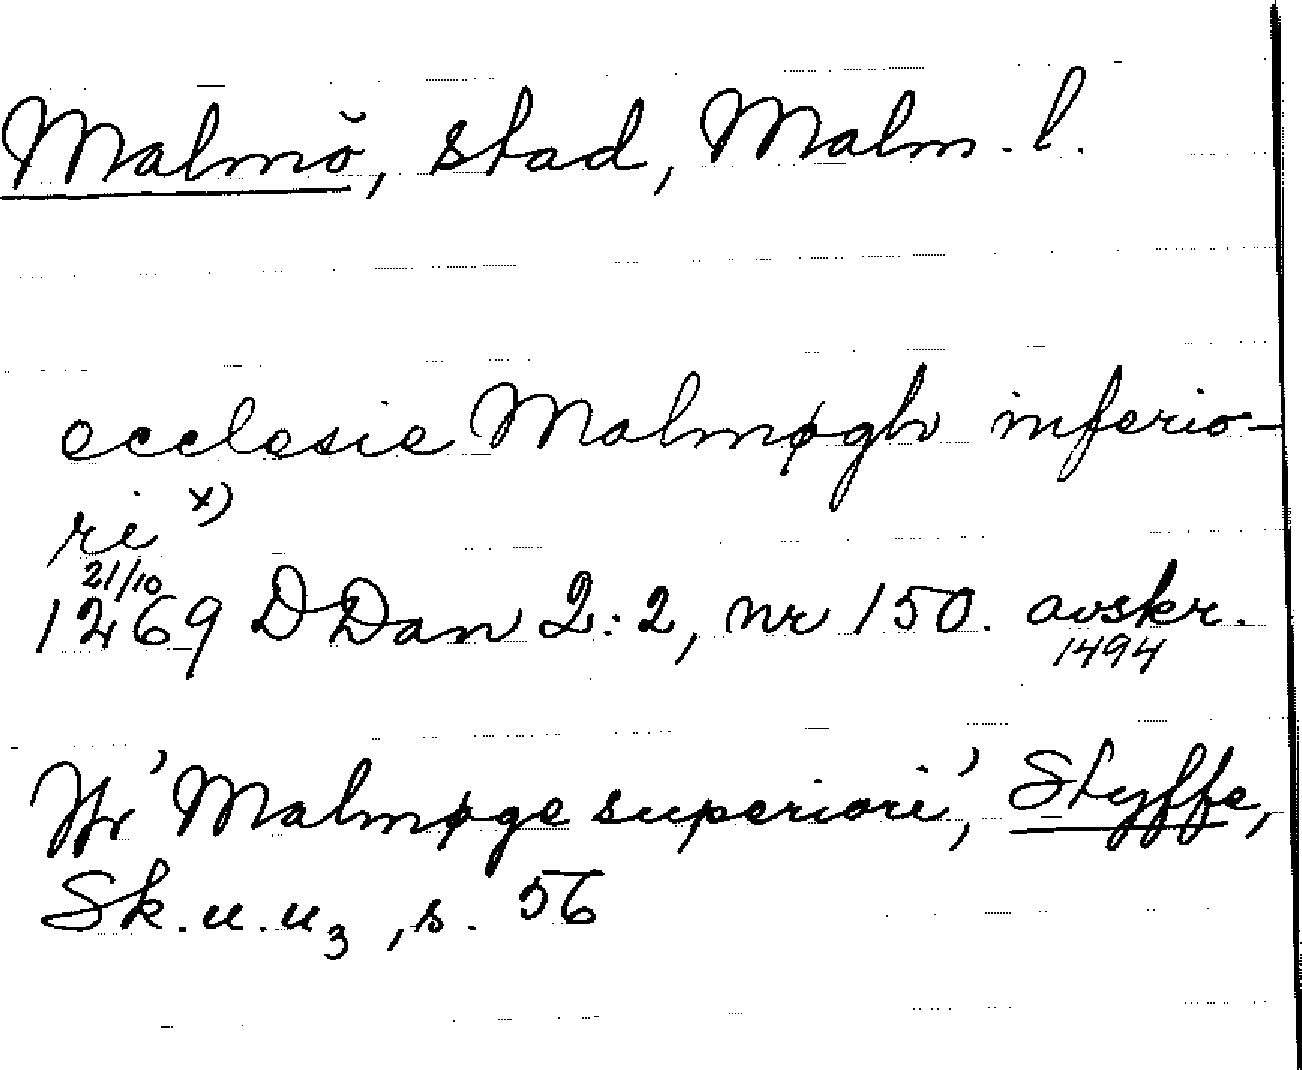 Malmö, stad, Malm. l.
ecclesie Malmøgh inferio-
ri x)
21/10
1269 DDan 2:2, nr 150. avskr.
1494
Jfr 'Malmøge superiori', Styffe,
Sk.u.u3, s. 56